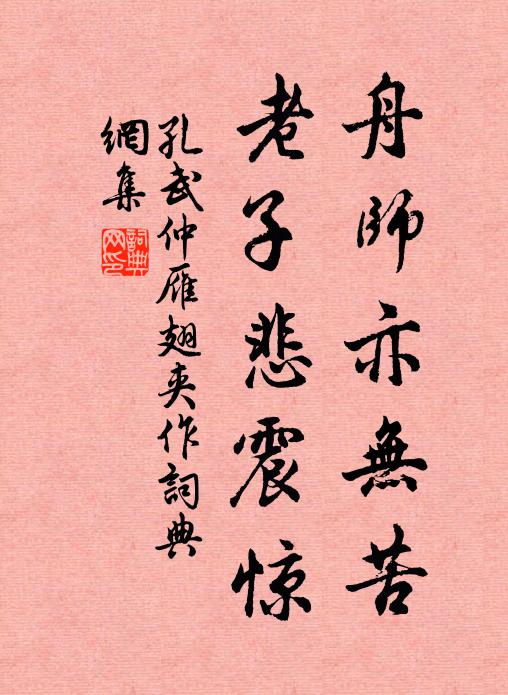 舟師亦無苦
老子悲震惊
孔武仲雁翅夹作詞典
網集
詞典网印